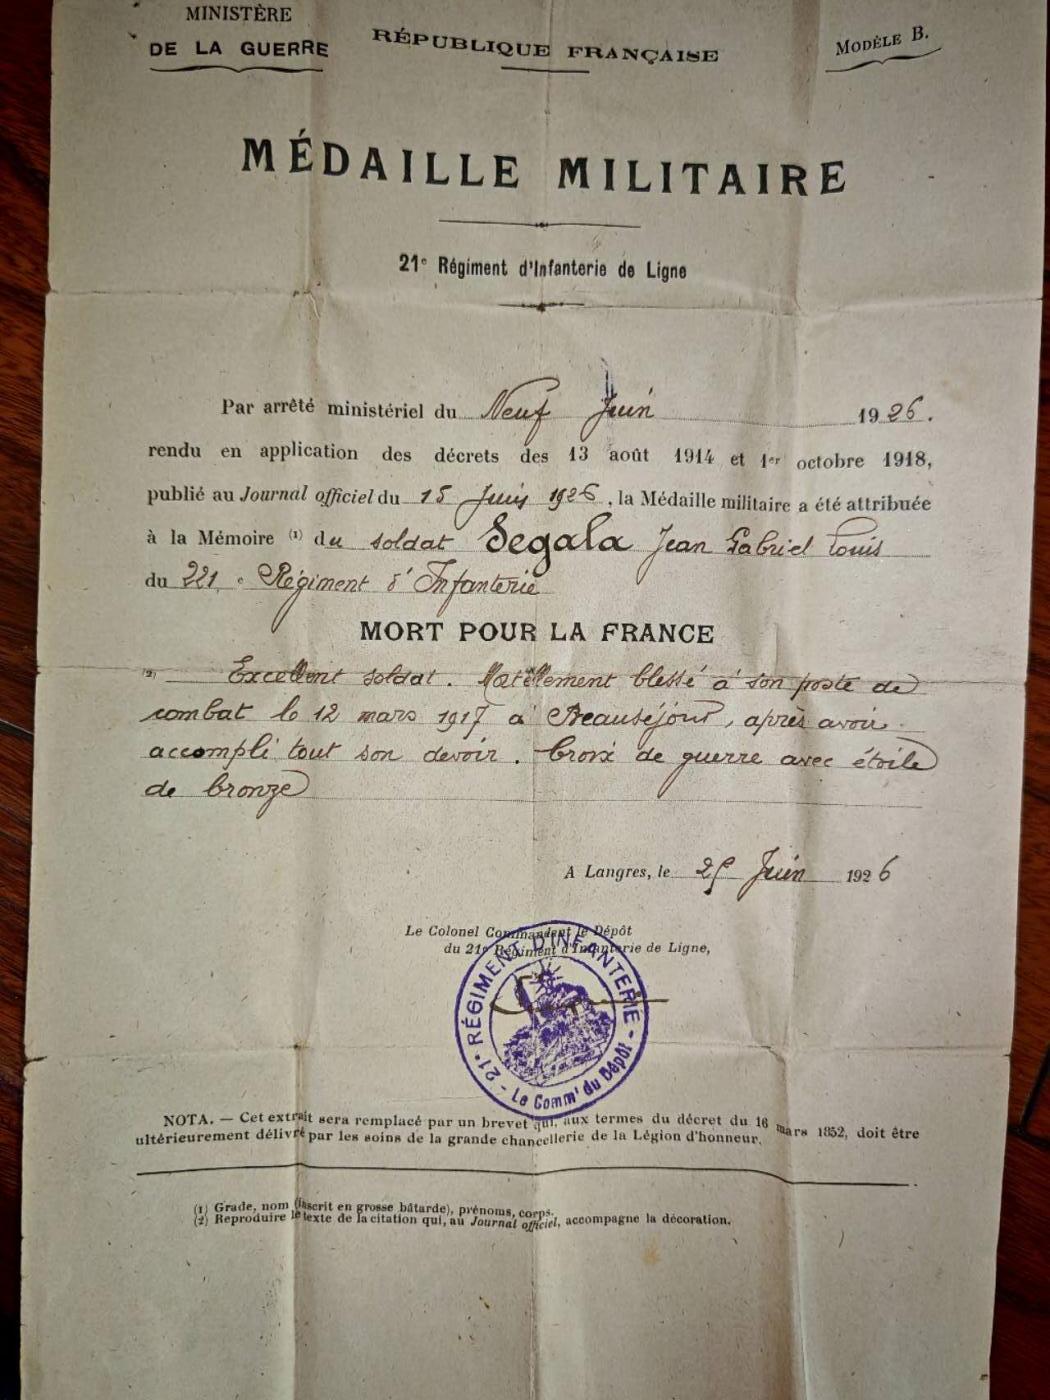 MINISTÈRE
DE LA GUERRE
RÉPUBLIQUE FRANÇAISE
MODÈLE B.
MÉDAILLE MILITAIRE
21e Régiment d'Infanterie de Ligne
Par arrêté ministériel du Neuf Juin 1926.
rendu en application des décrets des 13 août 1914 et 1er octobre 1918,
publié au Journal officiel du 15 Juin 1926, la Médaille militaire a été attribuée
à la Mémoire (1) du soldat Segala Jean Gabriel Louis
du 221e Régiment d'Infanterie
MORT POUR LA FRANCE
(2) Excellent soldat. Mortellement blessé à son poste de
combat le 12 mars 1917 à Beauséjour, après avoir
accompli tout son devoir. Croix de guerre avec étoile
de bronze
A Langres, le Juin 1926
Le Colonel Commandant le Dépôt
du 21e Régiment d'Infanterie de Ligne,
21e RÉGIMENT D'INFANTERIE
- Le Commt du Dépôt -
NOTA. — Cet extrait sera remplacé par un brevet qui, aux termes du décret du 16 mars 1852, doit être
ultérieurement délivré par les soins de la grande chancellerie de la Légion d'honneur.
(1) Grade, nom (inscrit en grosse bâtarde), prénoms, corps.
(2) Reproduire le texte de la citation qui, au Journal officiel, accompagne la décoration.